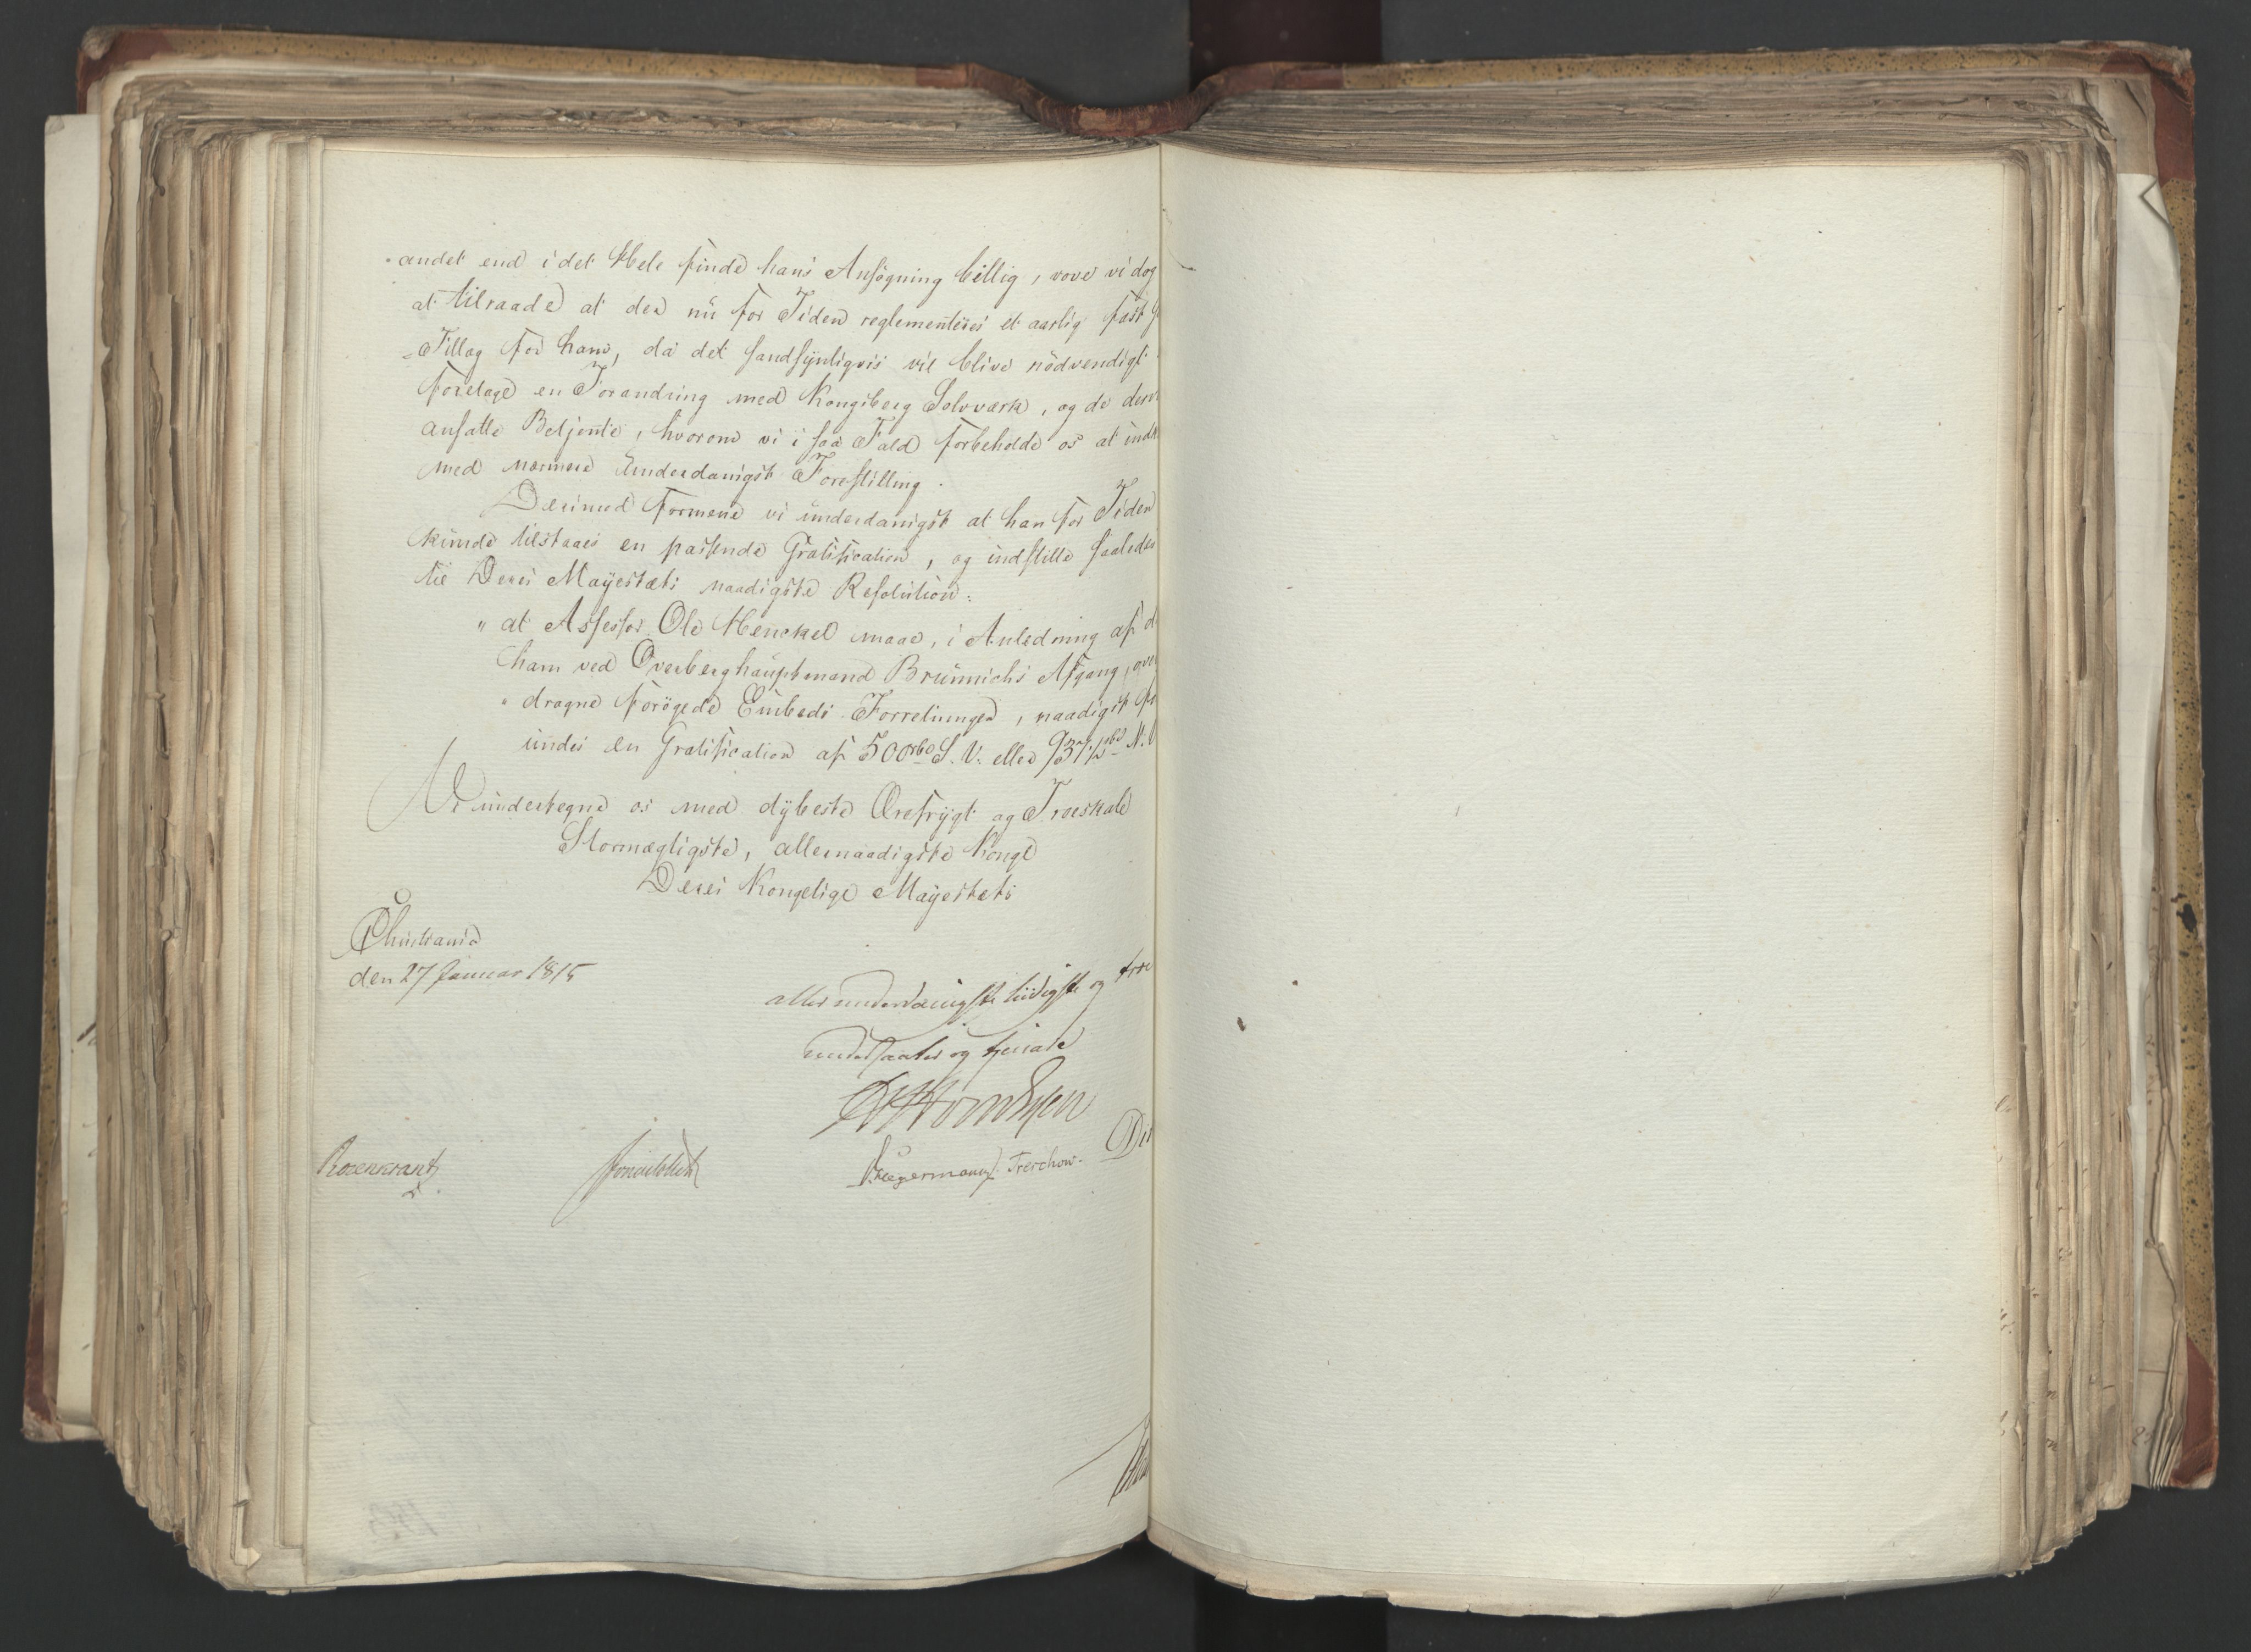 andet end i det Hele finde hans Ansøgning billig, vove vi dog
at tilraade at der nu for Tiden reglementeres et aarlig fast
Tillæg for ham, da det sandsynligvis vil blive nödvendigt
foretage en Forandring med Kongsberg Sølvværk, og de
ansatte Betjente, hvorom vi i saa Fald forbeholde os at
med nærmere underdanigst Forestilling.
Derimod formene vi underdanigst at han for Tiden
kunde tilstaaes en passende Gratification, og indstille saaledes
til Deres Mayestæts naadigste Resolution:
" at Assessor Ole Henckel maae, i Anledning af
ham ved Overberghauptmand Brünnichs Afgang,
" dragne forøgede Embeds Forretninger, naadigst
undes en Gratification af 500 rbd S. V. eller 937 1/2 rbd N.
Vi undertegne os med dybeste Ærefrygt og Troeskab
Stormægtigste, allernaadigste Konge
Deres Kongelige Mayestæts
Christiania
den 27 Januar 1815
allerunderdanigste lydigste og troe
undersaatter og tjenere
Rosenkrantz
Sommerhielm
Krieger­mann Treschow.